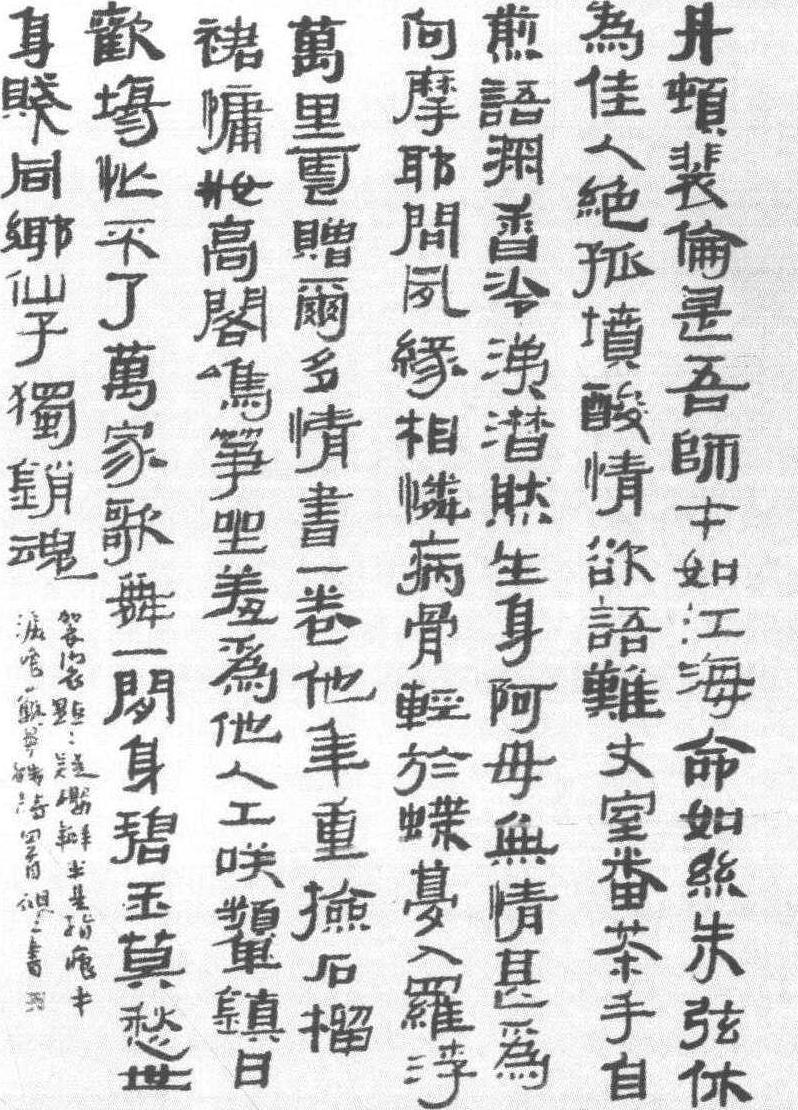 丹頓裴倫是吾師才如江海命如絲朱弦休
為佳人絕孤墳酸情欲語難丈室番茶手自
煎語深香冷涕潸然生身阿母無情甚爲
向摩耶問夙緣相憐病骨輕於蝶夢入羅浮
萬里雲贈爾多情書一卷他年重撿石榴
裙慵妝高閣鳴箏坐羞爲他人工咲顰鎮日
歡場忙不了萬家歌舞一閒身碧玉莫愁世
身賤同鄉仙子獨銷魂
袈裟點點疑櫻瓣半是脂痕半
淚痕 蘇曼殊詩 書